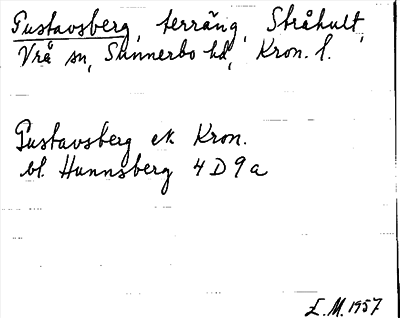 Gustavsberg, terräng, Stråhult,
Vrå sn, Sunnerbo hd, Kron. l.
Gustavsberg ek Kron.
bl. Hunnsberg 4 D 9 a
E.M. 1957